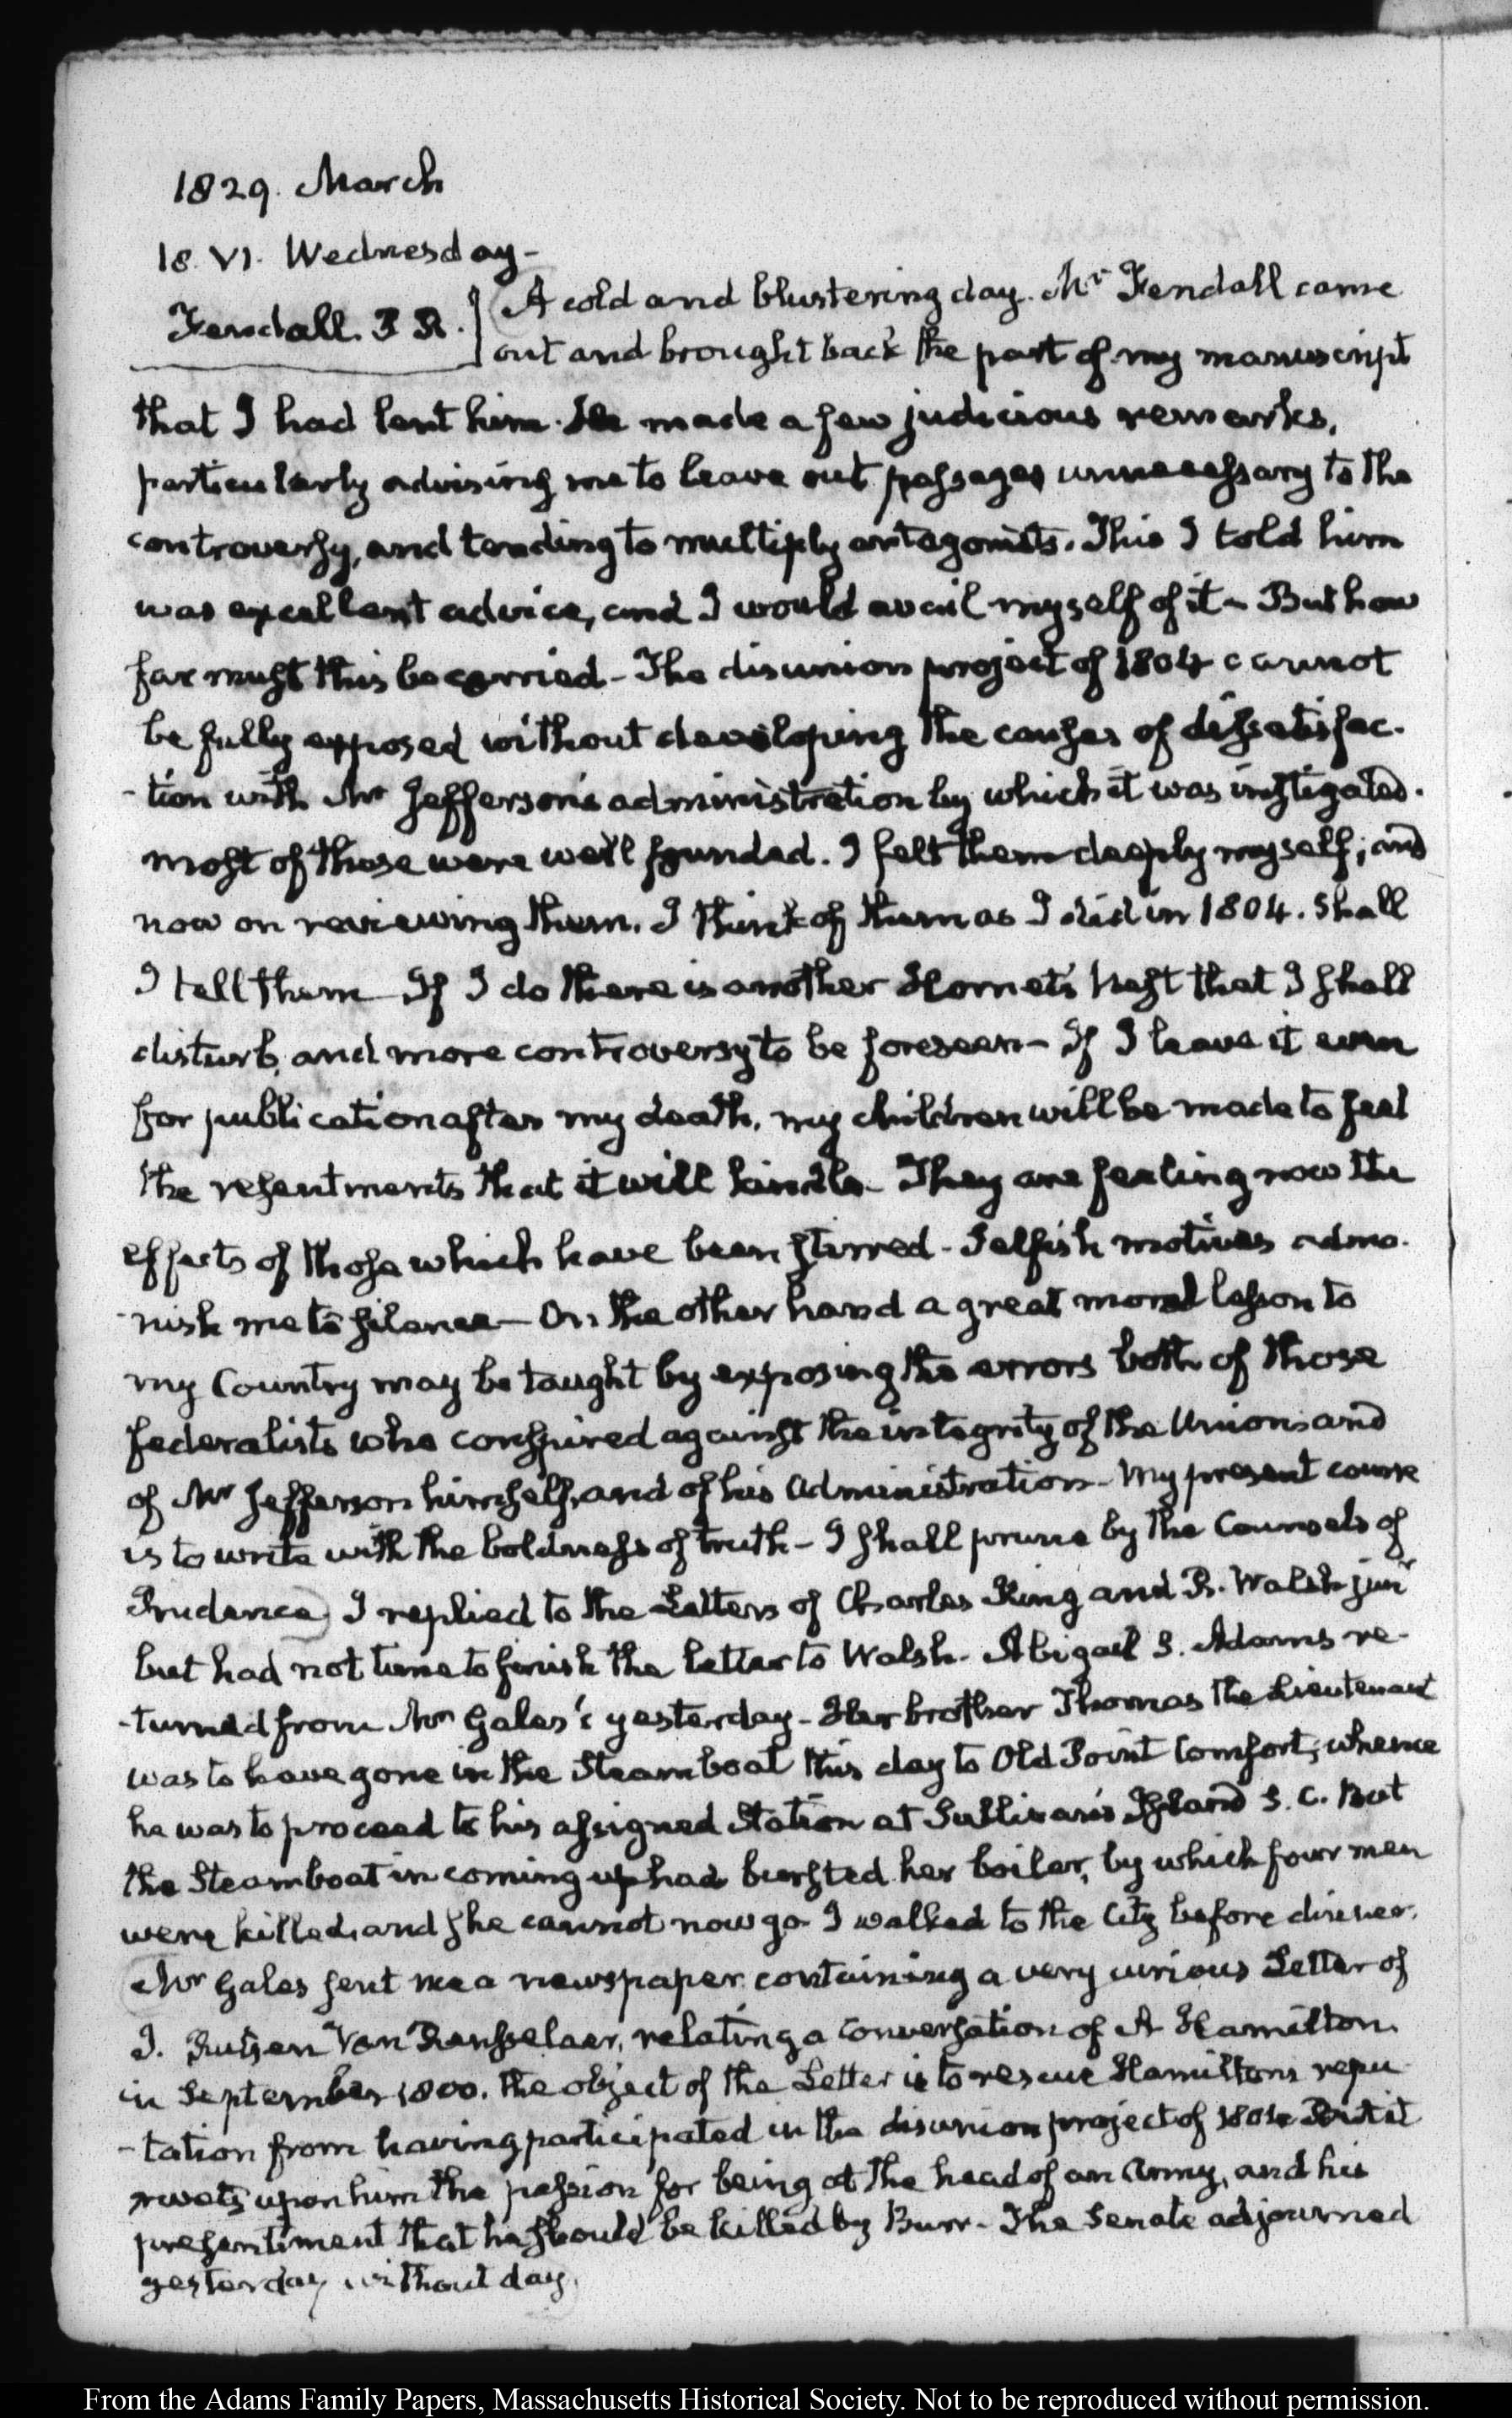 1829. March
18. VI. Wednesday-
Fendall. P R.
A cold and blustering day. Mr Fendall came
out and brought back the part of my manuscript
that I had lent him. He made a few judicious remarks,
particularly advising me to leave out passages unnecessary to the
controversy, and tending to multiply antagonists. This I told him
was excellent advice, and I would avail myself of it - But how
far must this be carried - The disunion project of 1804 cannot
be fully exposed without developing the causes of dissatisfac-
-tion with Mr Jefferson's administration by which it was instigated.
most of those were well founded. I felt them deeply myself; and
now on reviewing them, I think of them as I did in 1804. Shall
I tell them - If I do there is another Hornet's Nest that I shall
disturb, and more controversy to be foreseen - If I leave it even
for publication after my death, my children will be made to feel
the resentments that it will kindle - They are feeling now the
effects of those which have been stirred - Selfish motives admo-
-nish me to silence - On the other hand a great moral lesson to
my Country may be taught by exposing the errors both of those
federalists who conspired against the integrity of the Union and
of Mr Jefferson himself, and of his Administration - My present course
is to write with the boldness of truth - I shall prune by the Counsels of
Prudence. I replied to the Letters of Charles King and R. Walsh junr
but had not time to finish the letter to Walsh - Abigail S. Adams re-
-turned from Mrs Gales's yesterday - Her brother Thomas the Lieutenant
was to have gone in the Steamboat this day to Old Point Comfort, whence
he was to proceed to his assigned Station at Sullivan's Island S. C. But
the Steamboat in coming up had bursted her boiler, by which four men
were killed, and she cannot now go. I walked to the City before dinner.
Mr Gales sent me a newspaper containing a very curious Letter of
J. Rutsen Van Rensselaer, relating a conversation of A Hamilton
in September 1800. The object of the Letter is to rescue Hamilton's repu
-tation from having participated in the disunion project of 1804 But it
rivets upon him the passion for being at the head of an Army, and his
presentiment that he should be killed by Burr - The Senate adjourned
yesterday without day.
From the Adams Family Papers, Massachusetts Historical Society. Not to be reproduced without permission.